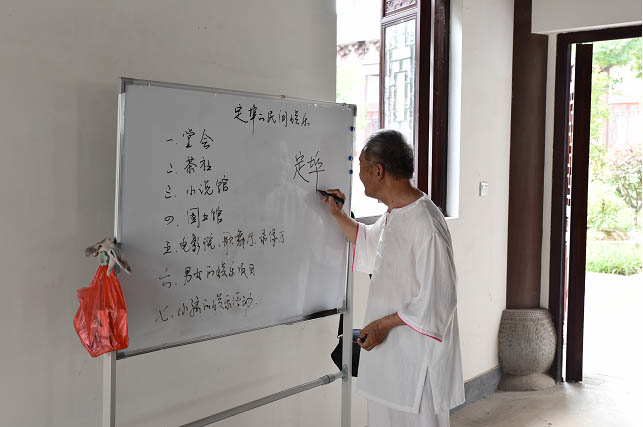 定埠之民间娱乐
一. 堂会
二. 茶社
三. 小说馆
四. 图书馆
五. 电影院, 歌舞厅. 录像厅
六. 男女的娱乐项目
七. 小孩的娱乐活动.
定埠